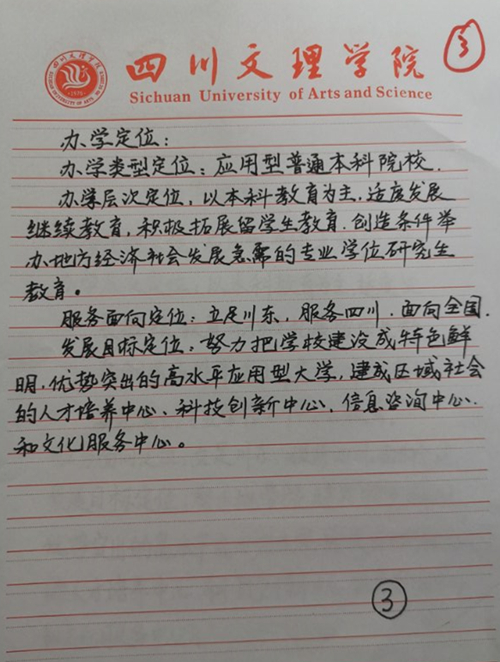 四川文理学院
Sichuan University of Arts and Science
3
办学定位：
办学类型定位：应用型普通本科院校.
办学层次定位，以本科教育为主，适度发展
继续教育，积极拓展留学生教育，创造条件举
办地方经济社会发展急需的专业学位研究生
教育。
服务面向定位：立足川东，服务四川，面向全国.
发展目标定位：努力把学校建设成特色鲜
明，优势突出的高水平应用型大学，建成区域社会
的人才培养中心、科技创新中心、信息咨询中心、
和文化服务中心。
3